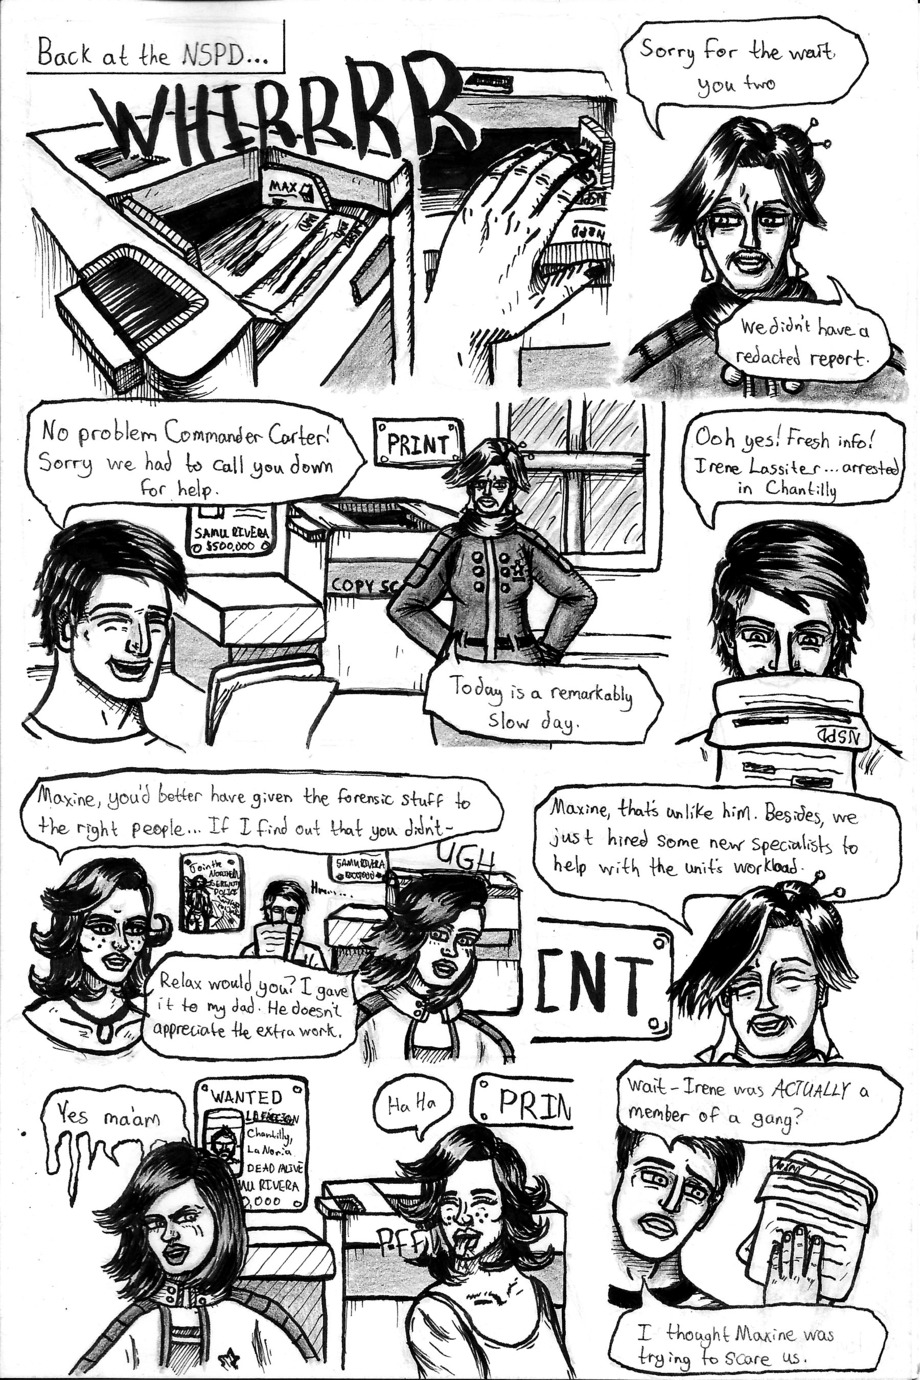 Back at the NSPD...
WHIRRRRR
MAX
NSPD
Sorry for the wait
you two
We didn't have a
redacted report.
No problem Commander Carter!
Sorry we had to call you down
for help.
PRINT
SAMU RIVERA
$500,000
COPY SC
Today is a remarkably
slow day.
Ooh yes! Fresh info!
Irene Lassiter... arrested
in Chantilly
NSPD
Maxine, you'd better have given the forensic stuff to
the right people... If I find out that you didn't-
Join the
NORTHERN
POLICE
SAMU RIVERA
Hmm...
UGH
Relax would you? I gave
it to my dad. He doesn't
appreciate the extra work.
Maxine, that's unlike him. Besides, we
just hired some new specialists to
help with the unit's workload.
INT
Yes ma'am
WANTED
Chantilly,
La Noria
DEAD ALIVE
MU RIVERA
0,000
Ha Ha
PRIN
PFF
Wait-Irene was ACTUALLY a
member of a gang?
I thought Maxine was
trying to scare us.